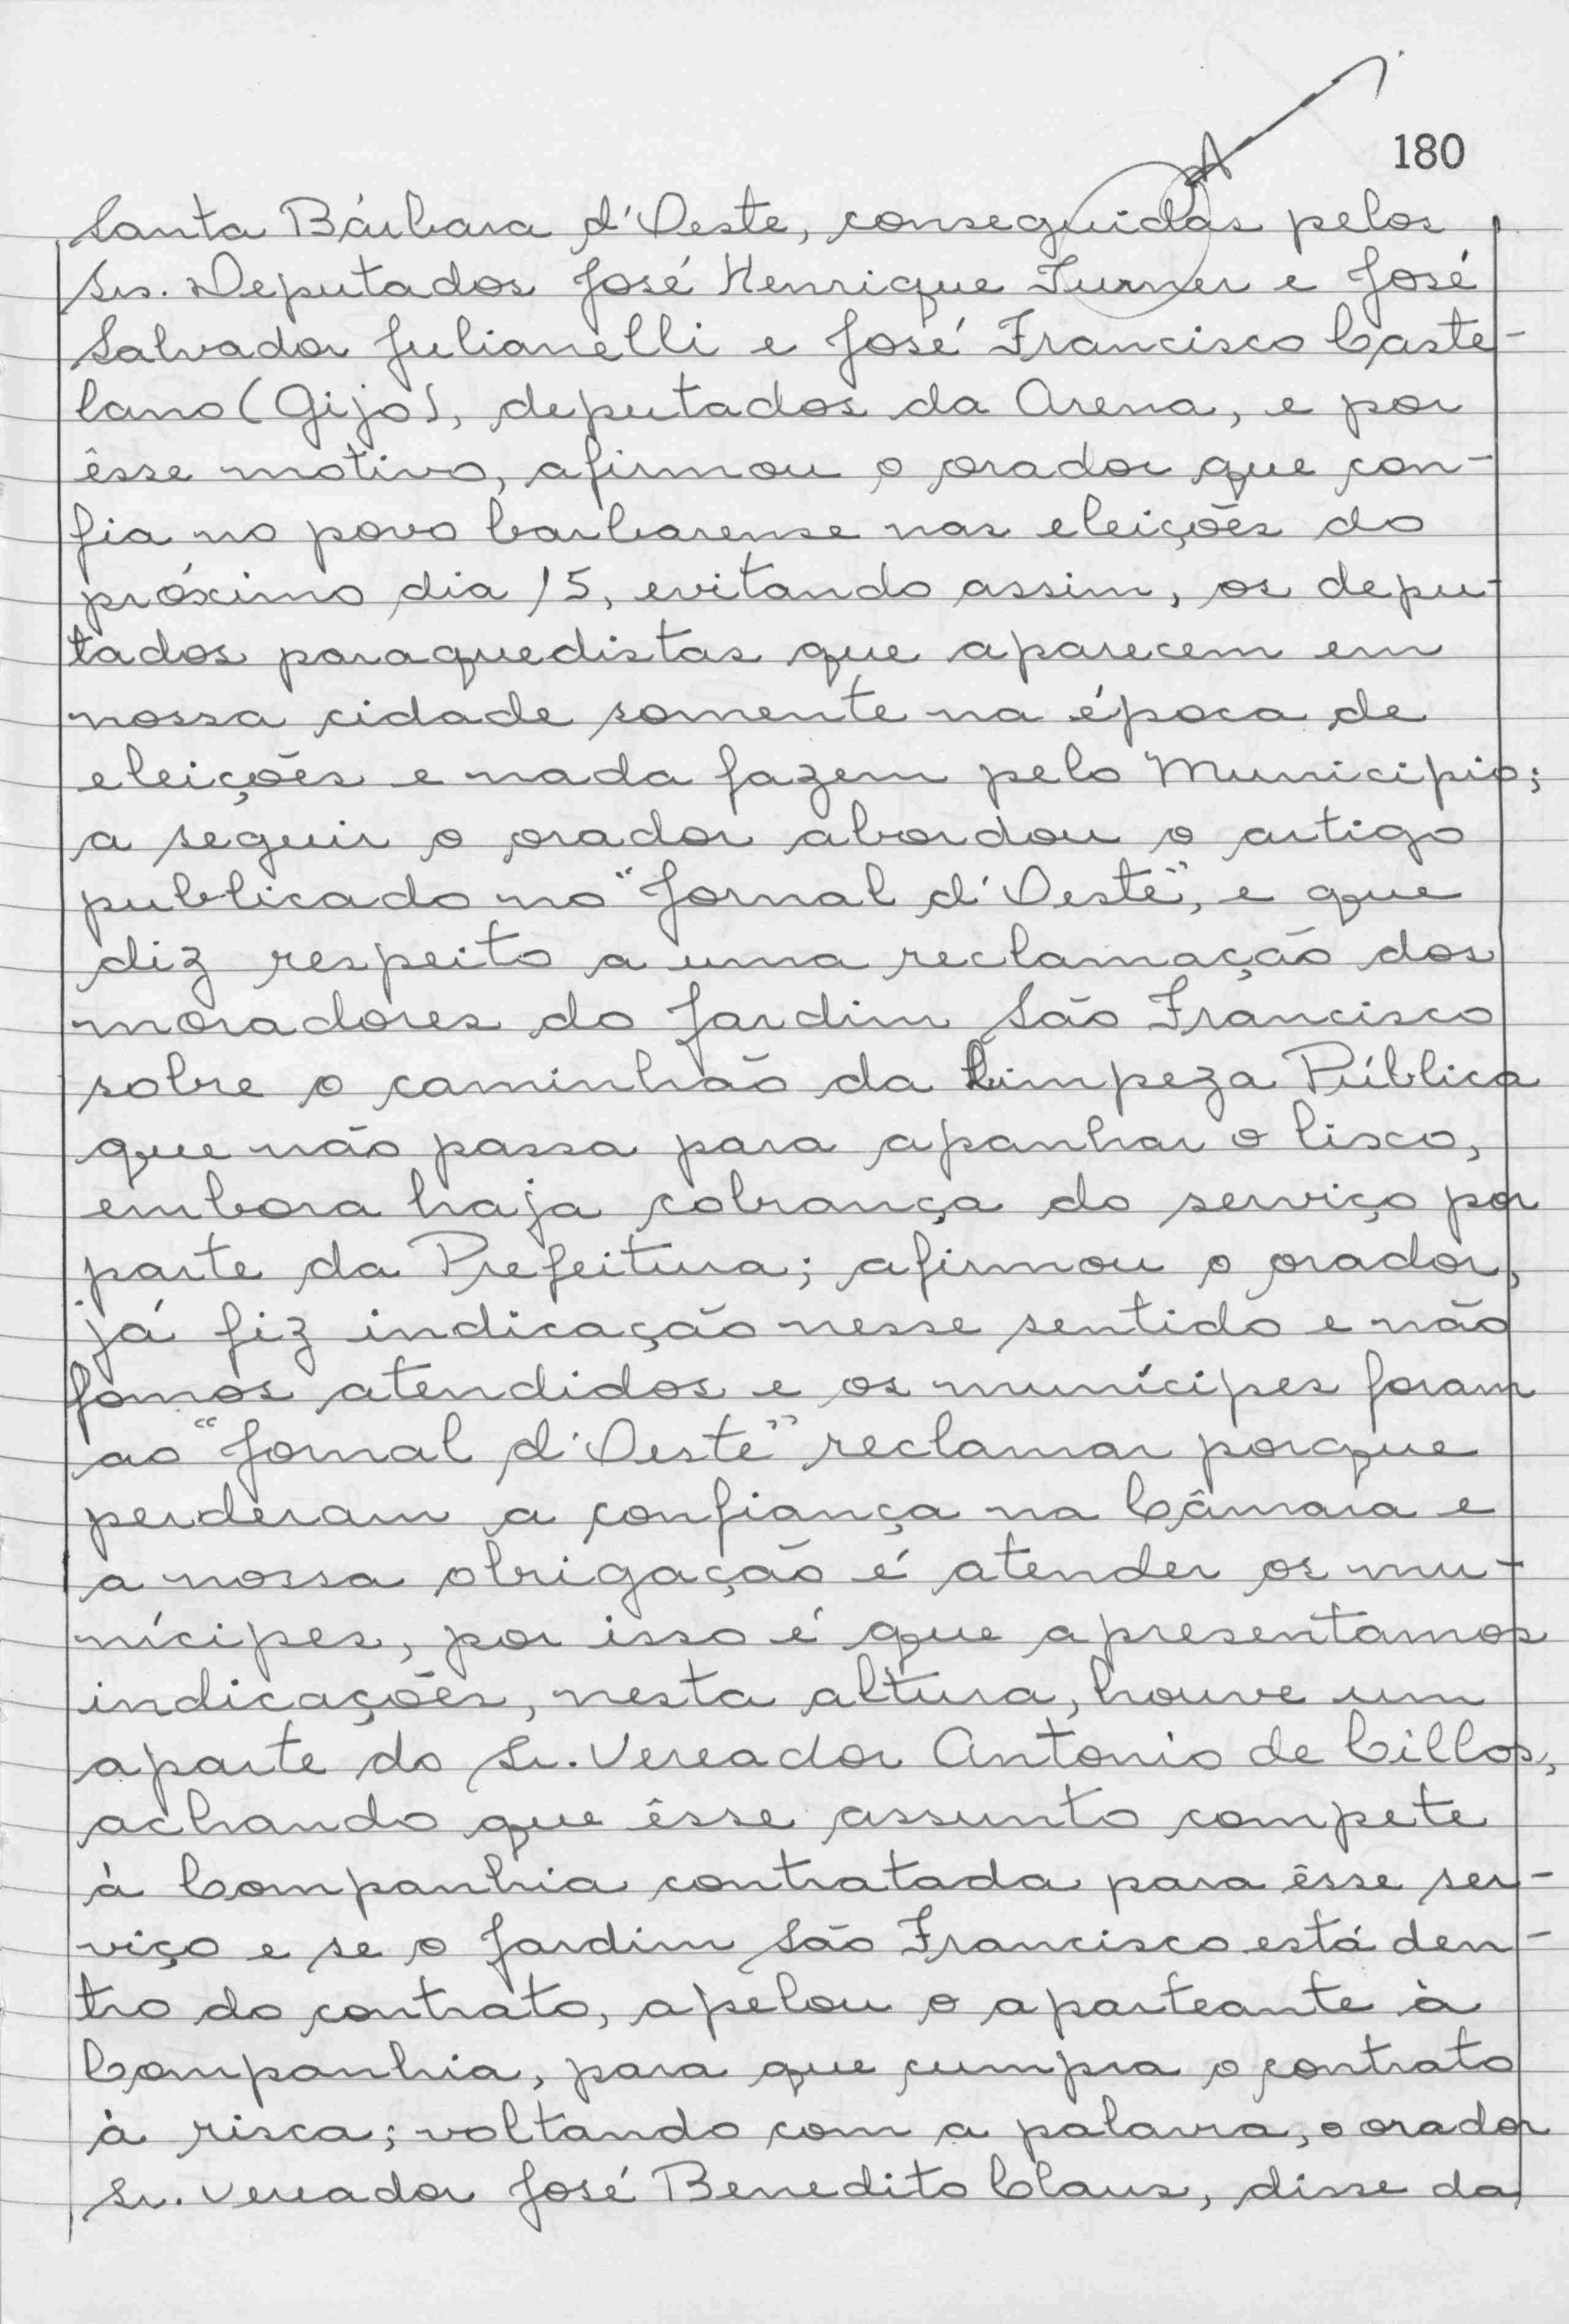 180
Santa Bárbara d'Oeste, conseguidas pelos
Srs. Deputados José Henrique Turner e José
Salvador Julianelli e José Francisco Caste-
lano (Gijo), deputados da Arena, e por
êsse motivo, afirmou o orador que con-
fia no povo barbarense nas eleições do
próximo dia 15, evitando assim, os depu-
tados paraquedistas que aparecem em
nossa cidade somente na época de
eleições e nada fazem pelo Municipio;
a seguir o orador abordou o artigo
publicado no "Jornal d'Oeste", e que
diz respeito a uma reclamação dos
moradores do Jardim São Francisco
sobre o caminhão da Limpeza Pública
que não passa para apanhar o lisco,
embora haja cobrança do serviço por
parte da Prefeitura; afirmou o orador,
já fiz indicação nesse sentido e não
fomos atendidos e os munícipes foram
ao "Jornal d'Oeste" reclamar porque
perderam a confiança na Câmara e
a nossa obrigação é atender os mu-
nícipes, por isso é que apresentamos
indicações, nesta altura, houve um
aparte do Sr. Vereador Antonio de Cillos,
achando que êsse assunto compete
à Companhia contratada para êsse ser-
viço e se o Jardim São Francisco está den-
tro do contrato, apelou o aparteante à
Companhia, para que cumpra o contrato
à risca; voltando com a palavra, o orador
Sr. Vereador José Benedito Claus, disse da